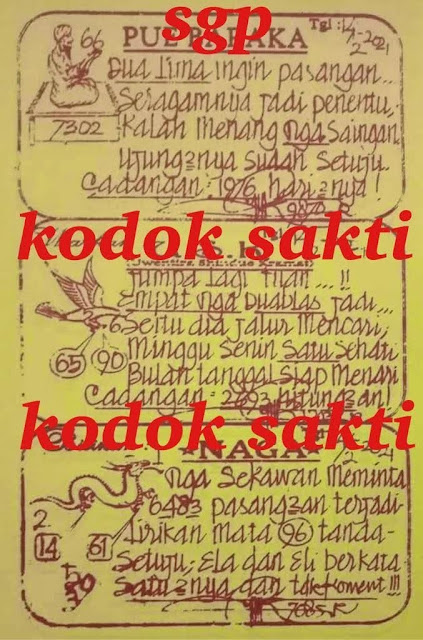 sgp
66
PUE BARAKA
Tgl: 14/2-2021
Dua Lima ingin pasangan...
Seragamnya jadi penentu,
7302
Kalah menang nga Saingan
Ujung2nya sudah Setuju.
Cadangan: 1976 hari2nya!
9870
kodok sakti
(Jwentira Shindue Kramat)
Jumpa lagi Tuan...!!
Empat nga Duablas jadi...
6
Sertu dia jalur mencari,
65 90
Minggu Senin Satu Sehati
Bulan tanggal siap Menari
Cadangan: hitungan!
kodok sakti
NAGA
nga Sekawan Meminta
6483 pasang2an terjadi
2
14 61
Lirikan mata 96 tanda-
Setuju; Ela dan Eli berkata
Satu2nya dan tak koment!!!
7685